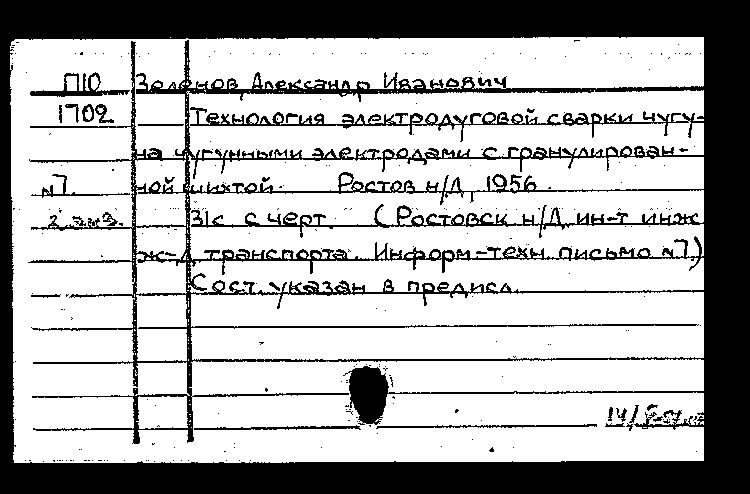 П10 Зеленов, Александр Иванович
1702 Технология электродуговой сварки чугу-
на чугунными электродами с гранулирован-
№7. ной шихтой. Ростов н/Д, 1956.
2 экз. 31с. с черт. (Ростовск н/Д ин-т инж
ж-д транспорта. Информ-техн письмо №7)
Сост. указан в предисл.
14/